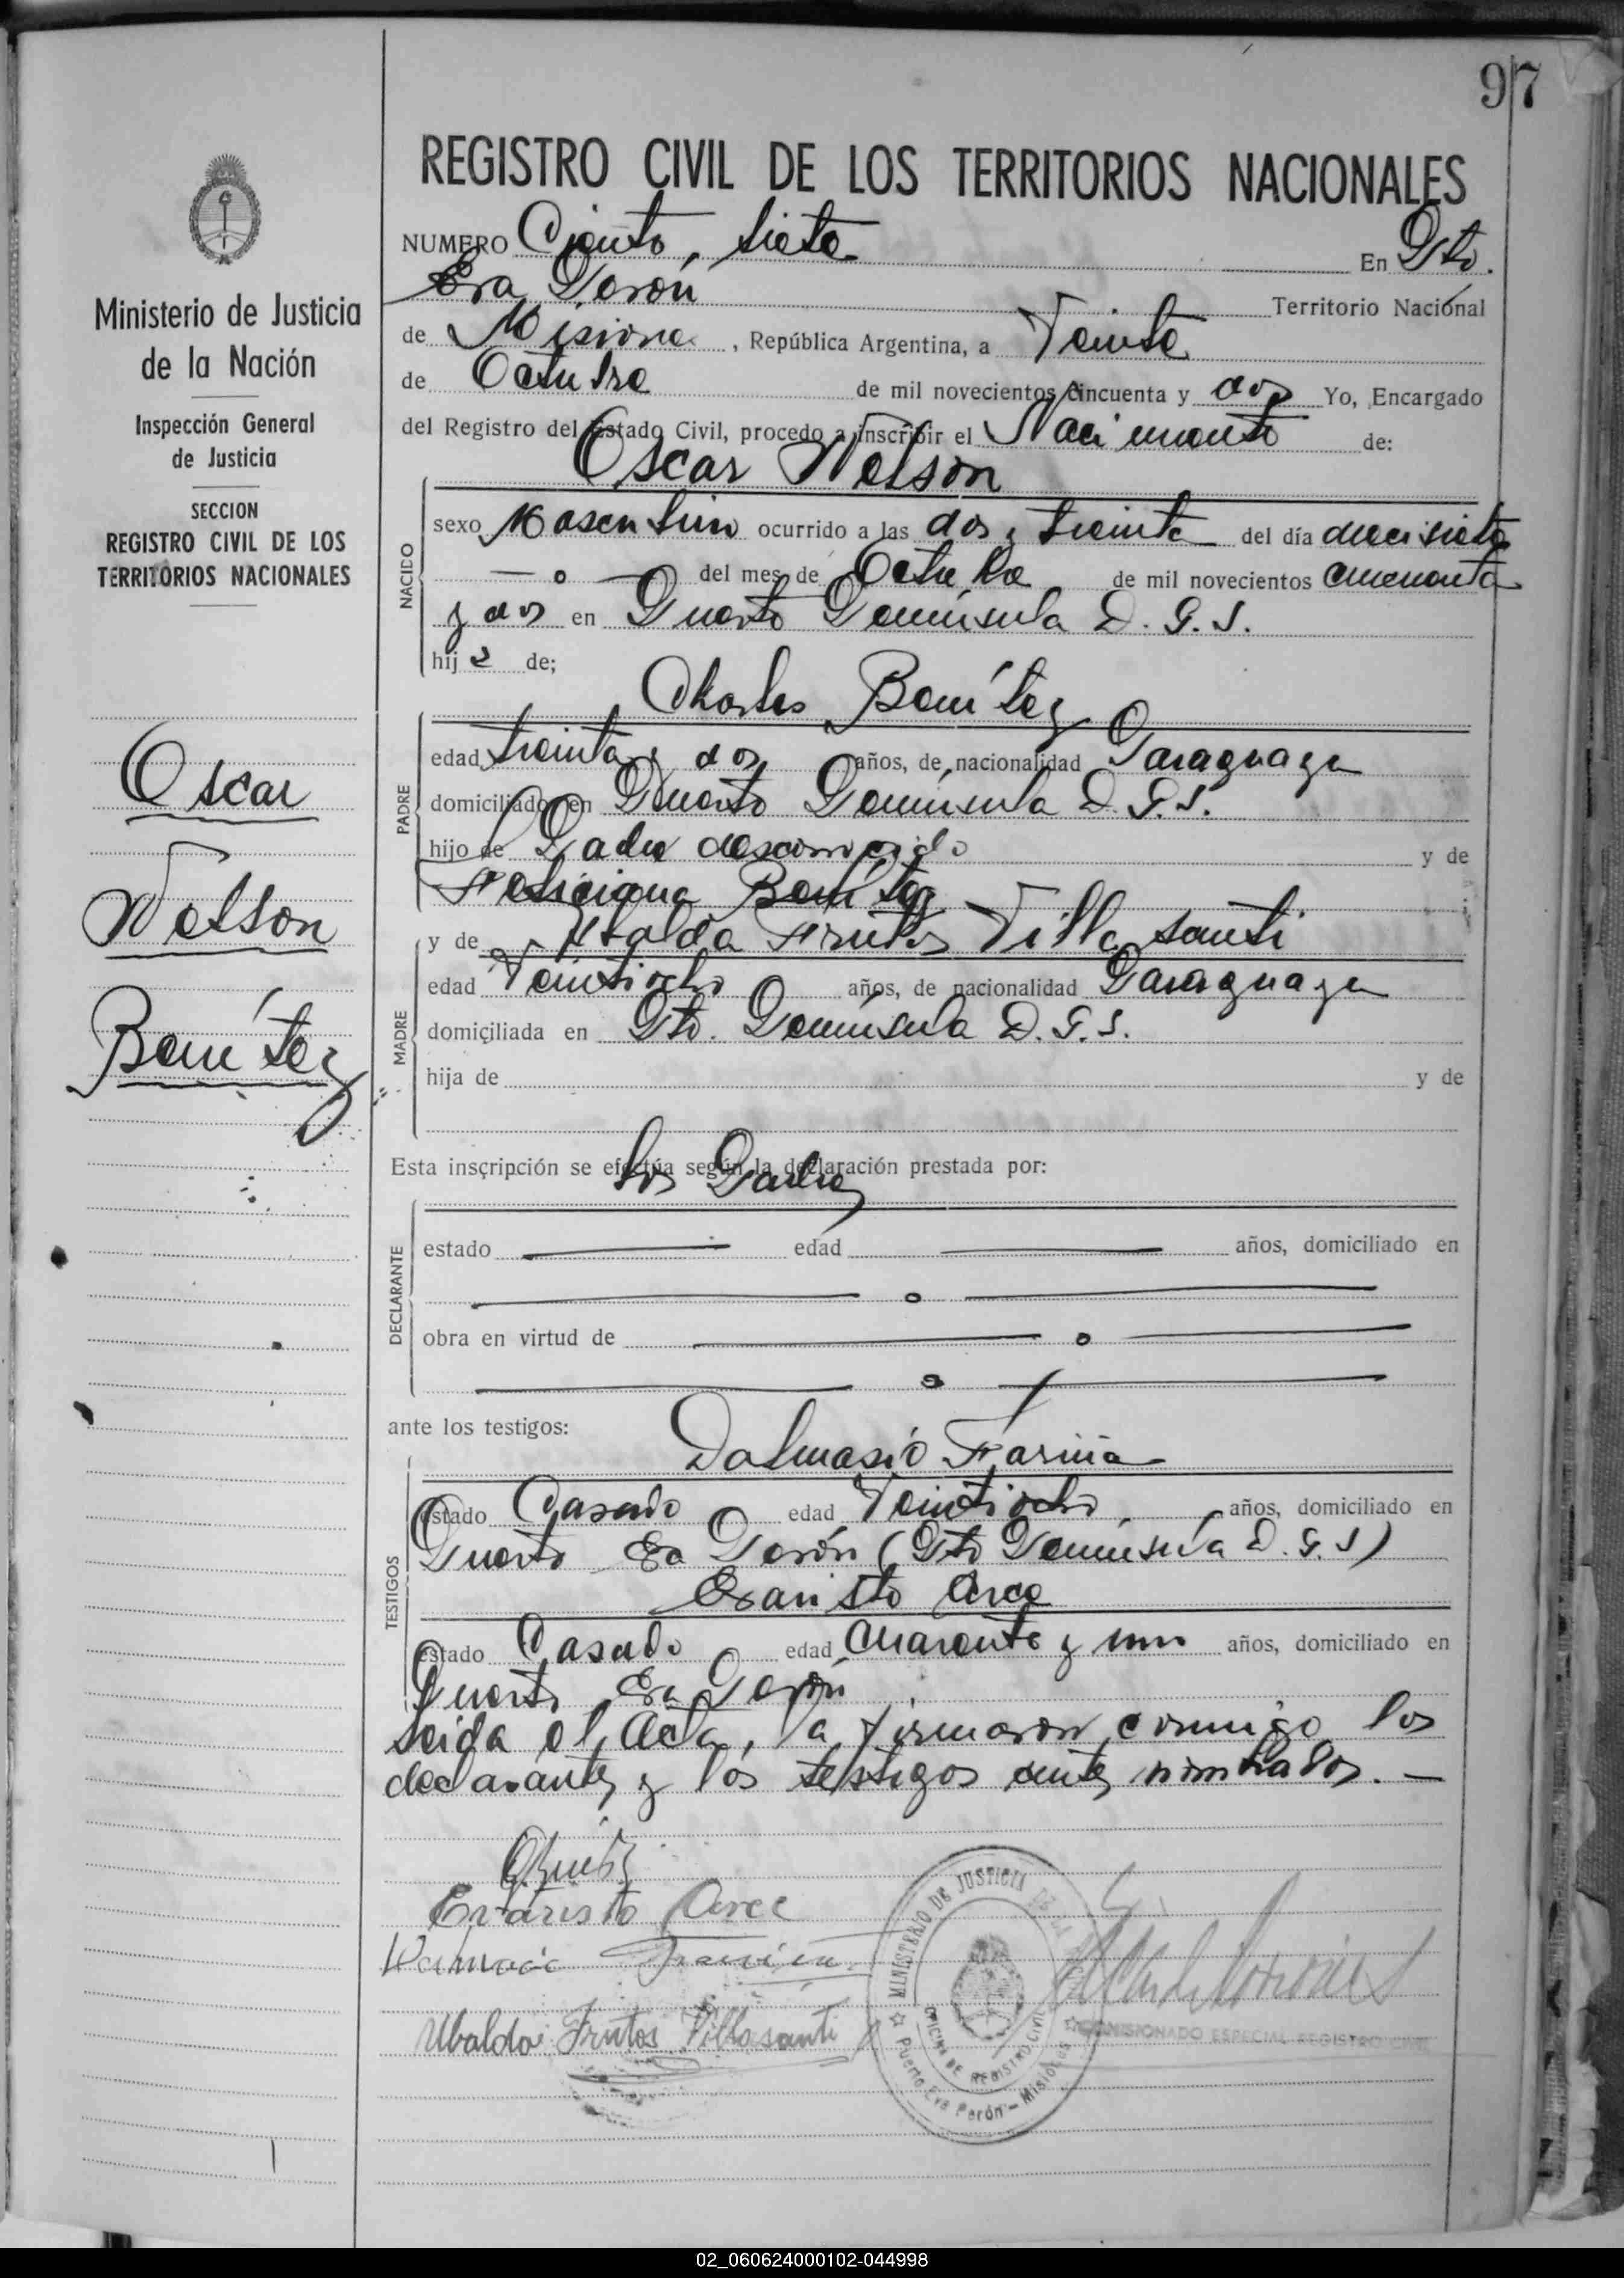 97
REGISTRO CIVIL DE LOS TERRITORIOS NACIONALES
NUMERO Ciento siete En Pto.
Eva Perón Territorio Nacional
de Misiones, República Argentina, a Veinte
de Octubre de mil novecientos cincuenta y dos Yo, Encargado
del Registro del Estado Civil, procedo a inscribir el Nacimiento de:
Oscar Nelson
NACIDO
sexo Masculino ocurrido a las dos y treinta del día diecisiete
— o — del mes de Octubre de mil novecientos cincuenta
y dos en Puerto Península D. G. I.
hijo de;
Benítez
PADRE
edad treinta y dos años, de nacionalidad Paraguaya
domiciliado en Puerto Península D. G. I.
hijo de Padre desconocido y de
Feliciana Benítez
MADRE
y de Ubalda Frutos Villasanti
edad Veintiocho años, de nacionalidad Paraguaya
domiciliada en Pto. Península D. G. I.
hija de y de
Esta inscripción se efectúa según la declaración prestada por:
los Padres
DECLARANTE
estado edad años, domiciliado en
obra en virtud de
ante los testigos:
Dalmasio Fariña
TESTIGOS
estado Casado edad Veintiocho años, domiciliado en
Puerto Eva Perón (Pto Península D. G. I)
Evaristo Arce
estado Casado edad Cuarenta y uno años, domiciliado en
Puerto Eva Perón
Leida el Acta, la firmaron conmigo los
declarantes y los testigos antes nombrados. —
Evaristo Arce
Ubalda Frutos Villasanti
MINISTERIO DE JUSTICIA DE LA
OFICINA DE REGISTRO CIVIL
Puerto Eva Perón - Misiones
COMISIONADO ESPECIAL REGISTRO CIVIL
Ministerio de Justicia
de la Nación
Inspección General
de Justicia
SECCION
REGISTRO CIVIL DE LOS
TERRITORIOS NACIONALES
Oscar
Nelson
Benítez
02_060624000102-044998